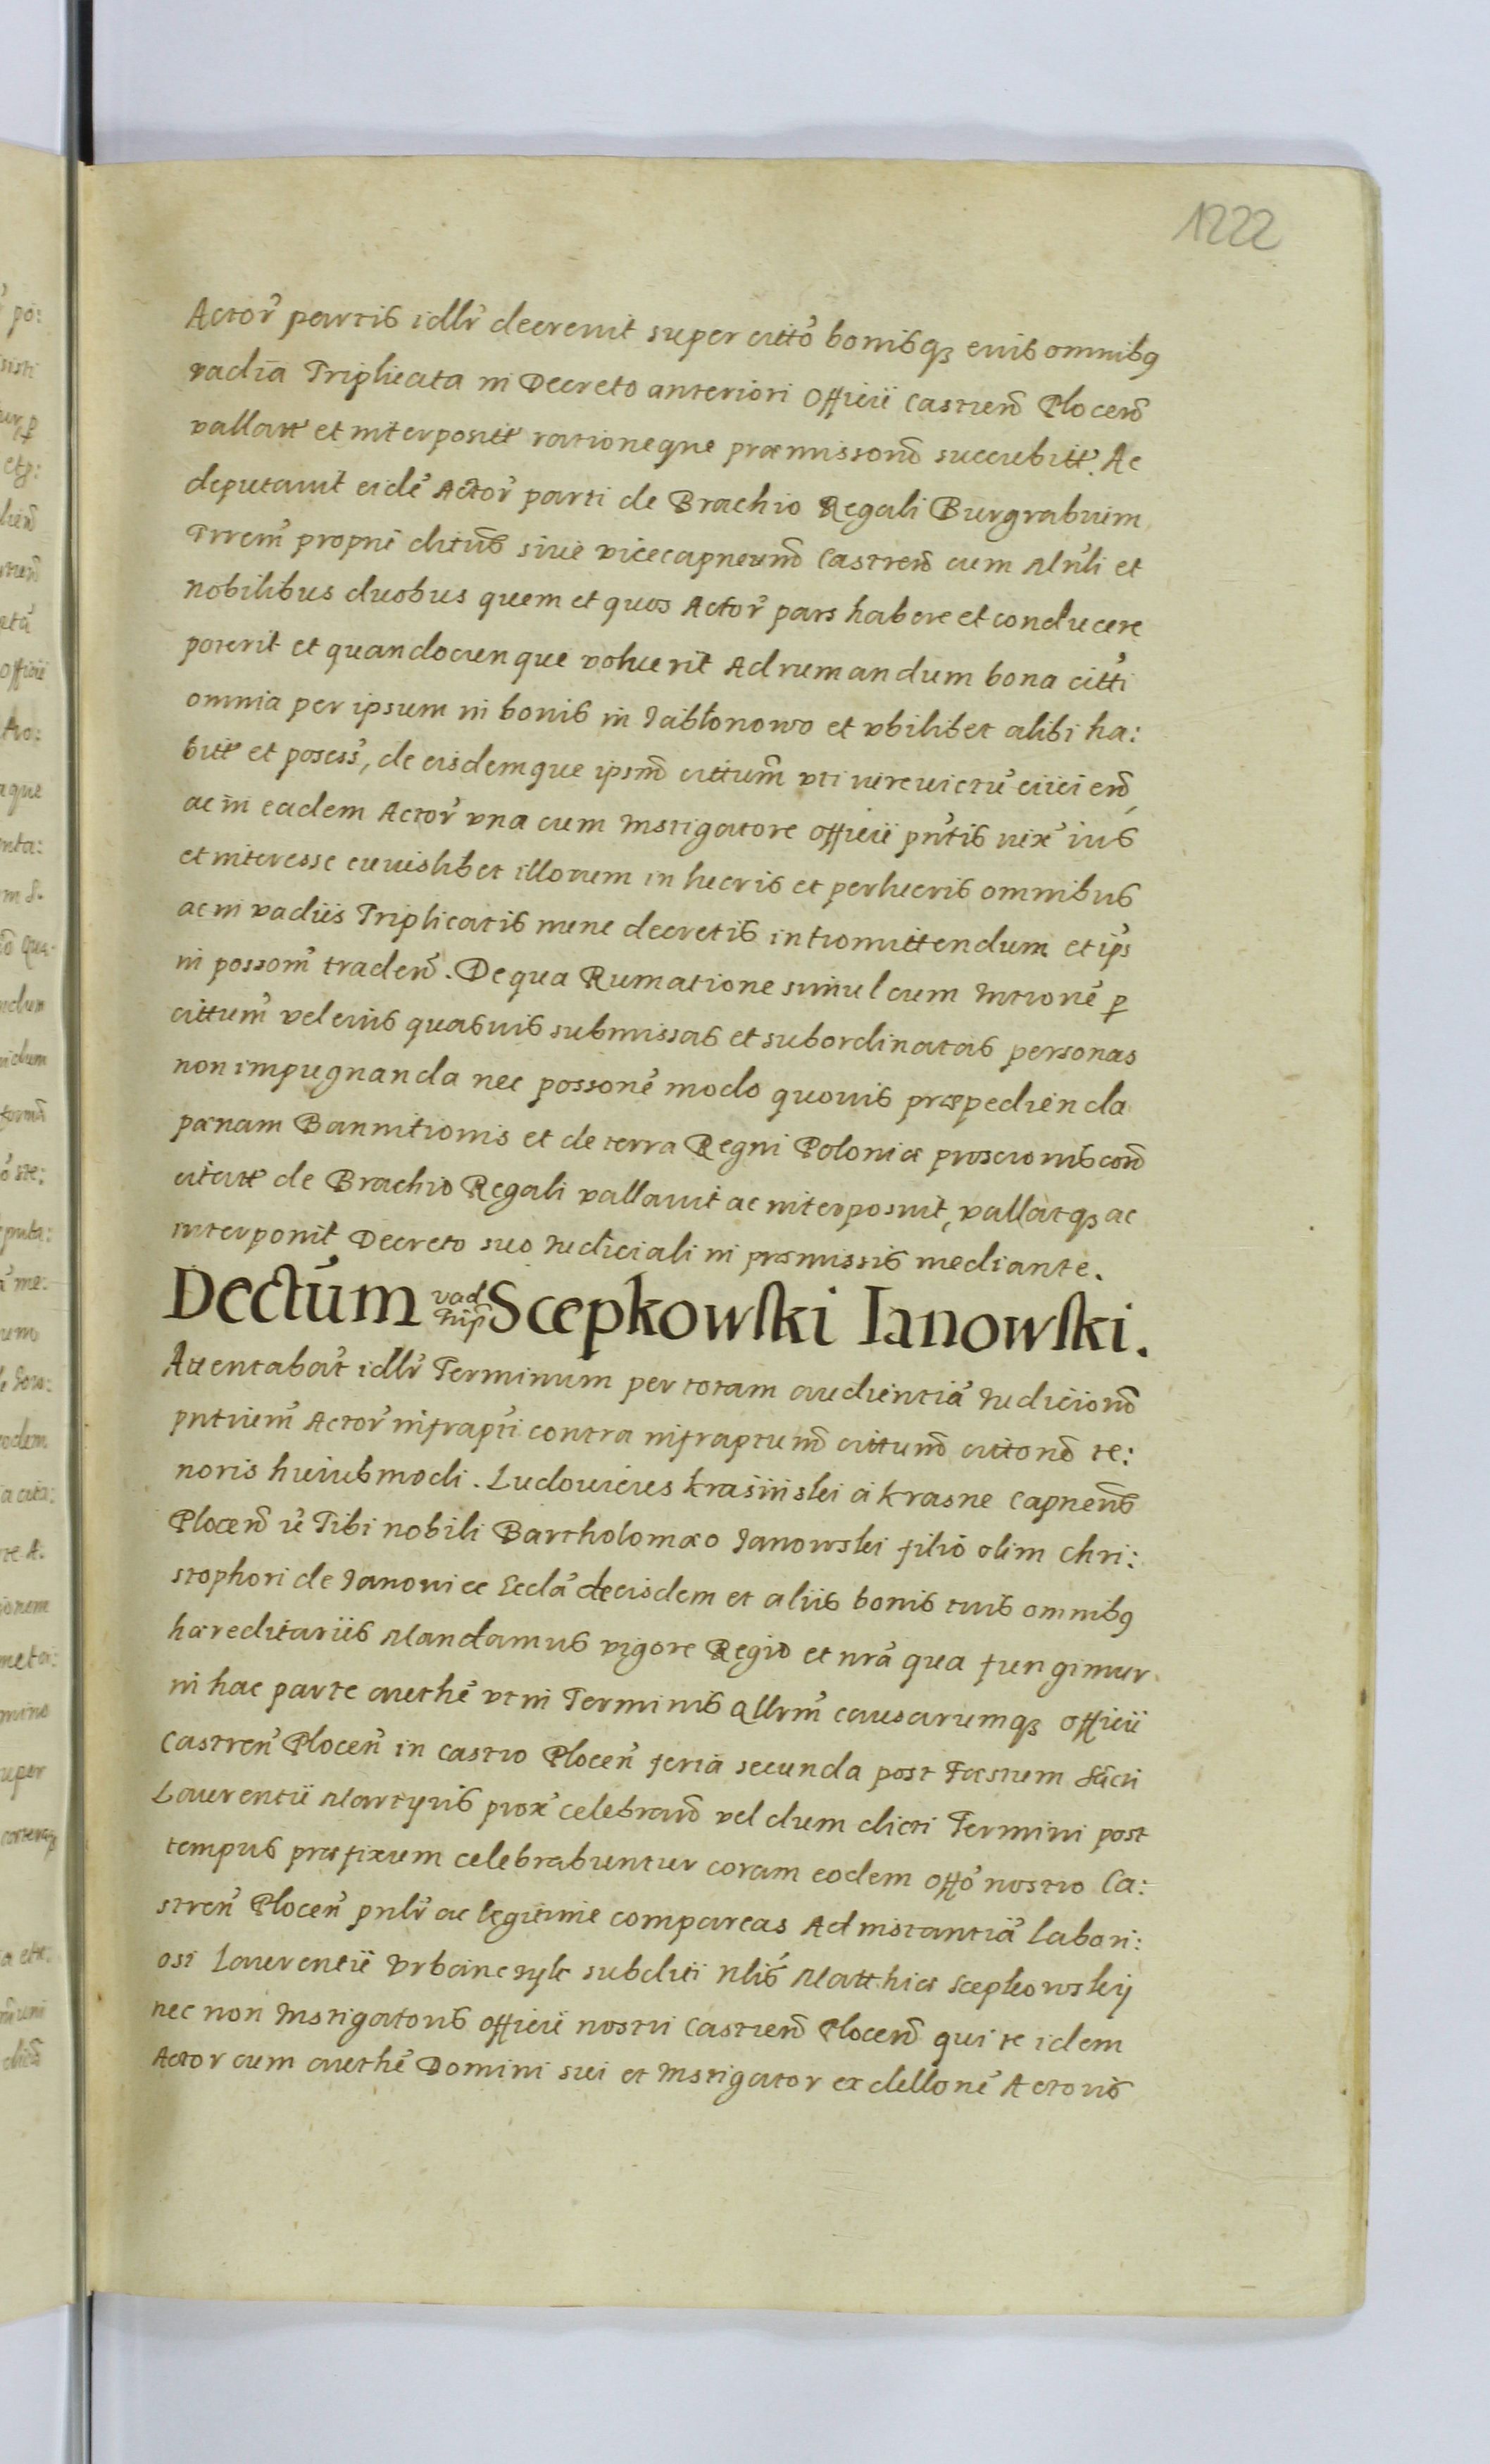 1222
Actor̃ partis idłr̃ decrevit super citt̃o bonisq̃ȝ eius omnibꝯ
vadia Triplicata in Decreto anteriori Officii Castren̄ Plocen̄
vallatt̃ et interpositt̃ rationeque præmissor̄ succubitt̃. Ac
deputavit eidẽ Actor̃ parti de Brachio Regali Burgrabium
Trrem̃ proprie dictũ siue vicecapneum̄ Castren̄ cum Mńli et
nobilibus duobus quem et quos Actor̃ pars habere et conducere
poterit et quandocunque voluerit Ad rumandum bona citt̃i
omnia per ipsum in bonis in Jabłonowo et vbilibet alibi ha:
bitt̃ et posess̃, de eisdemque ipsm̄ cittum̃ vti iure uictũ eiiciend̄,
ac in eadem Actor̃ vna cum Instigatore officii pn̄tis iux̃ ius
et interesse cuiuslibet illorum in lucris et perlucris omnibus
ac in vadiis Triplicatis mene decretis intromittendum et ip̃s
in possom̃ traden̄. De qua Rumatione simul cum Intionẽ ꝑ
cittum̃ vel eius quasuis submissas et subordinatas personas
non impugnanda nec possonẽ modo quouis præpedienda
pænam Bannitionis et de terra Regni Poloniæ proscronis con̄
citatt̃ de Brachio Regali vallauit ac interposuit, vallatq̃ȝ ac
interponit Decreto suo Iudiciali in præmissis mediante.
Dectum̃ vad Trip̃ Scepkowski Ianowski.
Attentabat̃ idłr̃ Terminum per totam audientiã Iudicior̄
pn̄tium̃ Actor̃ infrapt̃i contra infraptum̄ cittum̄ cittor̄ te:
noris huiusmodi. Ludouicus Krasinski à Krasne Capneus̃
Plocen̄ iẽ Tibi nobili Bartholomæo Janowski filio olim Chri:
stophori de Janowice Ecclã de eisdem et aliis bonis tuis omnibꝯ
hæreditariis Mandamus vigore Regio et nr̃a qua fungimur
in hac parte authẽ vt in Terminis qllrm̃ causarumqȝ officii
Castren̄ Plocen̄ in castro Plocen̄ feria secunda post Fæstum Sãcti
Laurentii Martyris prox̃ celebran̄ vel dum dicti Termini post
tempus præfixum celebrabuntur coram eodem Offõ nostro Ca:
stren̄ Plocen̄ pn̄lr̃ ac legitime compareas Ad instantiã Labori:
osi Laurentii Vrbanczyk subditi Nlis̃ Matthiæ Scepkowskij
nec non Instigatoris officii nostri Castren̄ Plocen̄ qui te idem
Actor cum authẽ Domini sui et Instigator ex dellonẽ Actoris